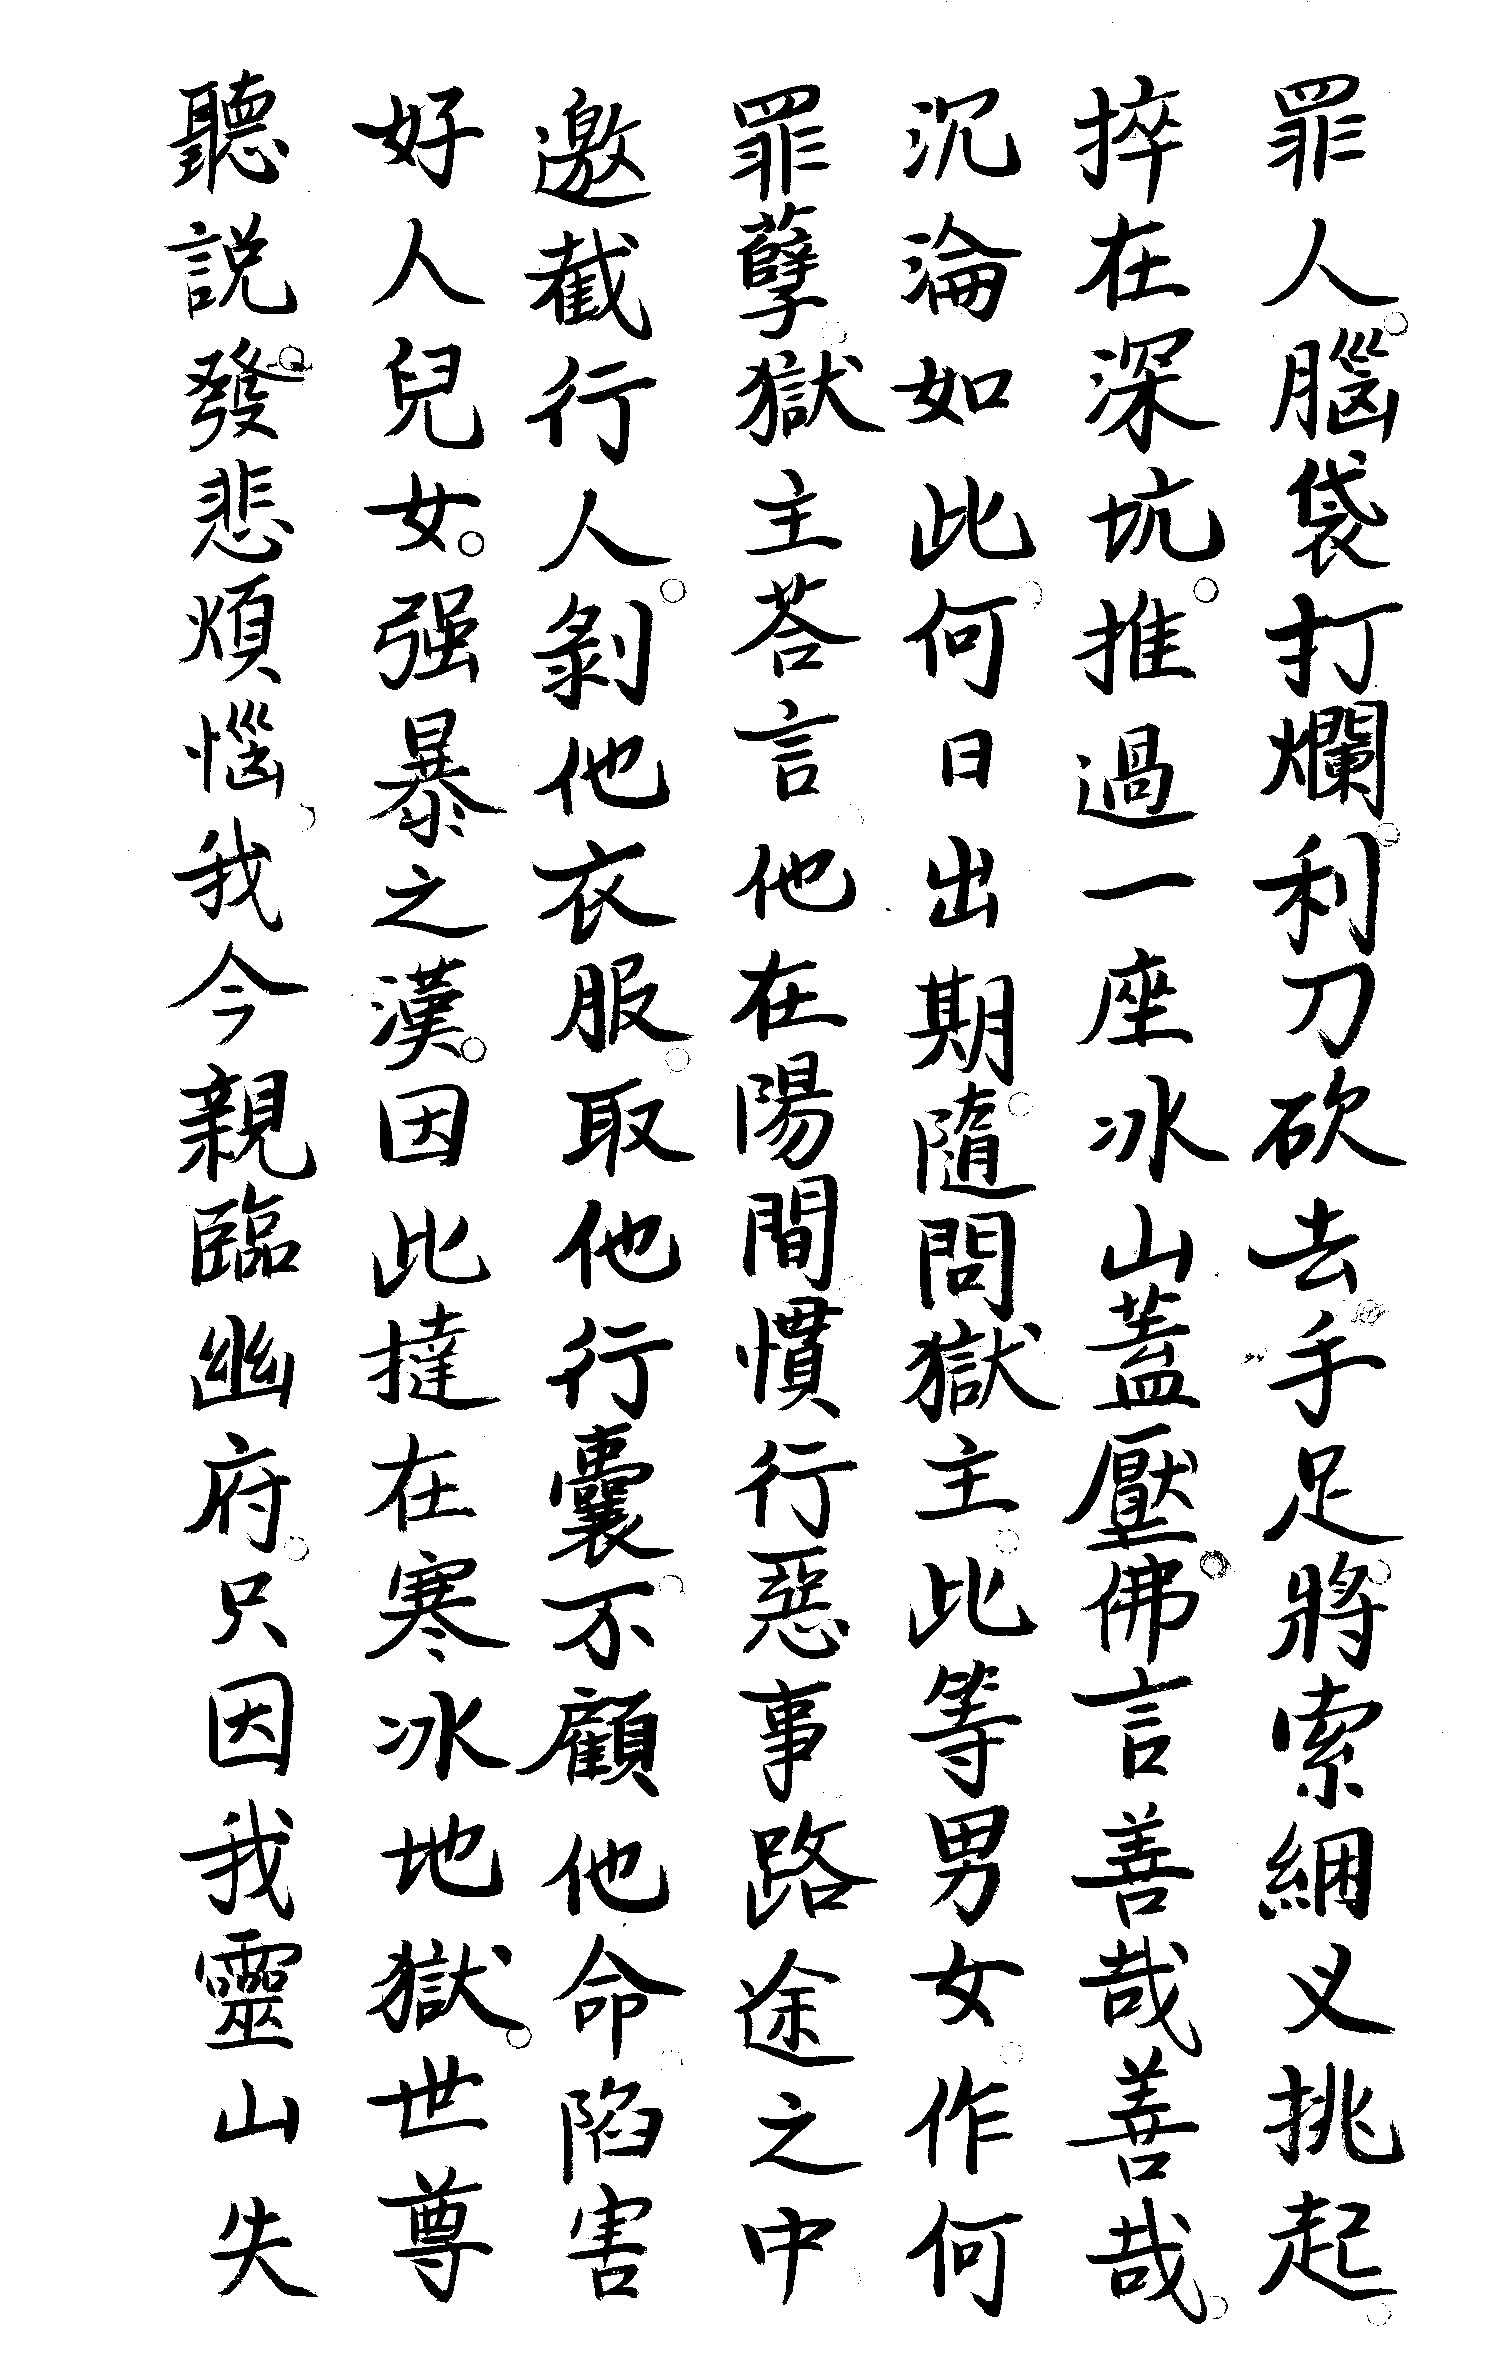 罪人。腦袋打爛。利刀砍去。手足。將索綑叉挑起。
捽在深坑。推過一座冰山蓋壓。佛言善哉善哉。
沉淪如此。何日出期。隨問獄主。此等男女。作何
罪孽。獄主荅言。他在陽間。慣行惡事。路途之中。
邀截行人。剝他衣服。取他行囊。不顧他命。陷害
好人兒女。强暴之漢。因此撻在寒冰地獄。世尊
聽說。發悲煩惱。我今親臨幽府。只因我靈山失